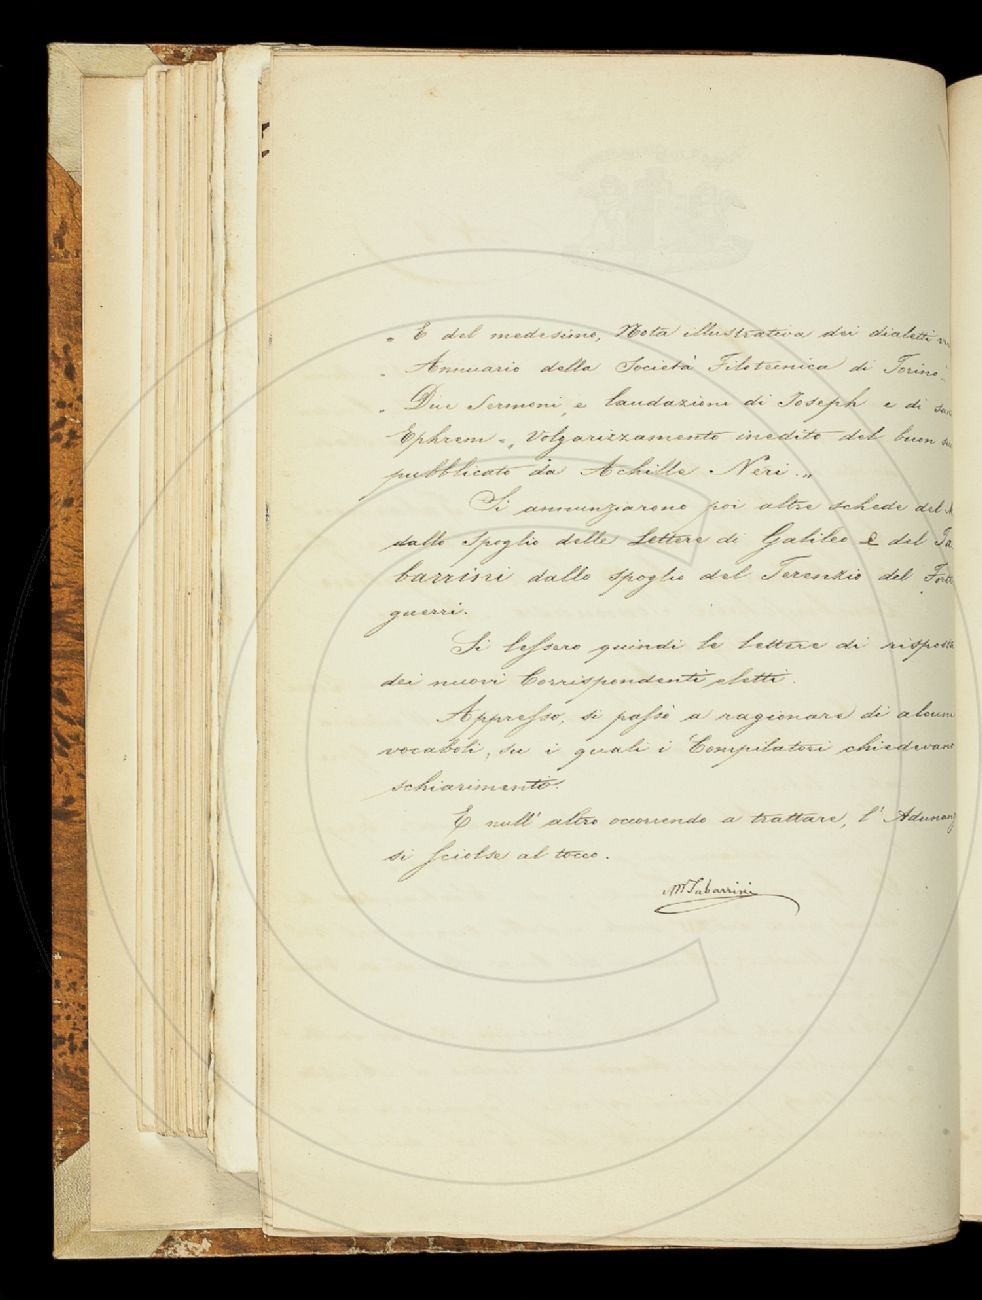 „ E del medesimo, Nota illustrativa dei dialetti
„ Annuario della Società Filotecnica di Torino.
„ Due Sermoni, e laudazioni di Joseph e di
Ephrem „, Volgarizzamento inedito del buon
pubblicato da Achille Neri. „
Si annunziarono poi altre schede del
dallo Spoglio delle Lettere di Galileo e del Ta
barrini dallo spoglio del Terenzio del Forte
guerri.
Si lessero quindi le lettere di risposta
dei nuovi Corrispondenti eletti.
Appresso, si passò a ragionare di alcuni
vocaboli, su i quali i Compilatori chiedevano
schiarimenti.
E null' altro occorrendo a trattare, l' Adunanz
si sciolse al tocco.
M Tabarrini